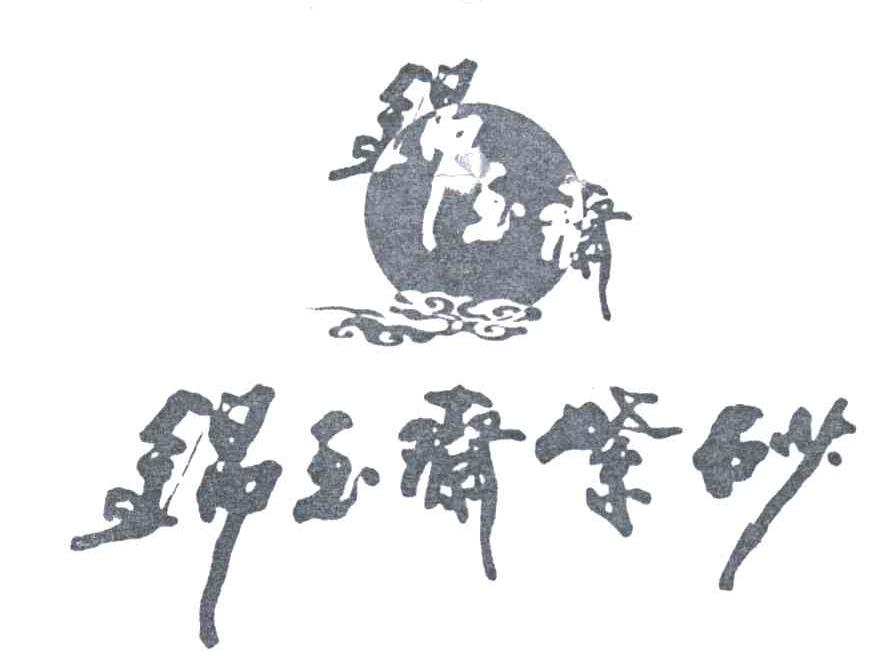 錦玉齋
錦玉齋紫砂